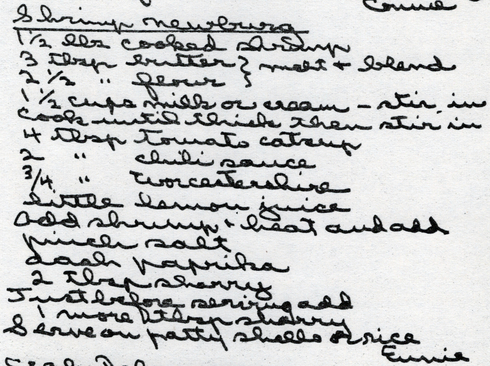 Connie
Shrimp Newburg
1 1/2 lbs cooked shrimp
3 tbsp butter } melt + blend
2 1/2 " flour }
1 1/2 cups milk or cream - stir in
cook until thick then stir in
4 tbsp tomato catsup
2 " chili sauce
3/4 " worcestershire
little lemon juice
add shrimp + heat and add
pinch salt
dash paprika
2 tbsp sharry
Just before serving add
1 more tbsp sharry
Serve on patty shells or rice
Eunie